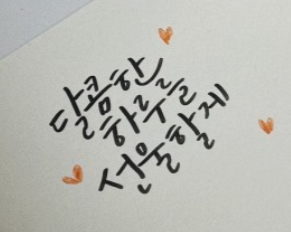 달콤한
하루를
선물할게